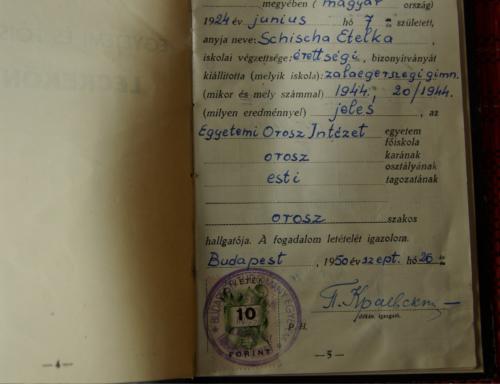 megyében ( magyar ország)
1924 év junius hó 7 -n született,
anyja neve: Schischa Etelka ,
iskolai végzettsége: érettségi , bizonyítványát
kiállította (melyik iskola): zalaegerszegi gimn.
(mikor és mely számmal) 1944. 20/1944.
(milyen eredménnyel) jeles , az
Egyetemi Orosz Intézet egyetem
főiskola
orosz karának
osztályának
esti tagozatának
orosz szakos
hallgatója. A fogadalom letételét igazolom.
Budapest , 1950 év szept. hó 26 -n
10
FORINT
P. H.
— 4 —
— 5 —